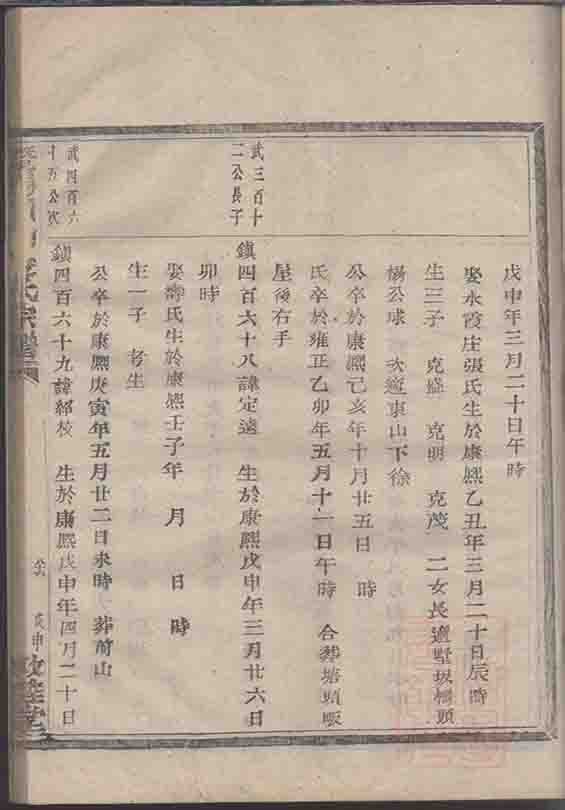 戊申年三月二十日午時
娶水霞庄張氏生於康熙乙丑年三月二十日辰時
生三子 克盛 克明 克茂 二女長適墅坂楊頭
楊公球 次適東山下徐
公卒於康熙己亥年十月廿五日 時
氏卒於雍正乙卯年五月十一日午時 合葬塘頭畈
屋後右手
武三百十
二公長子
鎮四百六十八諱定遠 生於康熙戊申年三月廿六日
卯時
娶壽氏生於康熙壬子年 月 日 時
生一子 考生
公卒於康熙庚寅年五月廿二日未時 葬前山
武四百六
十五公次
鎮四百六十九諱紹校 生於康熙戊申年四月二十日
氏宗譜
戊申
敦睦堂